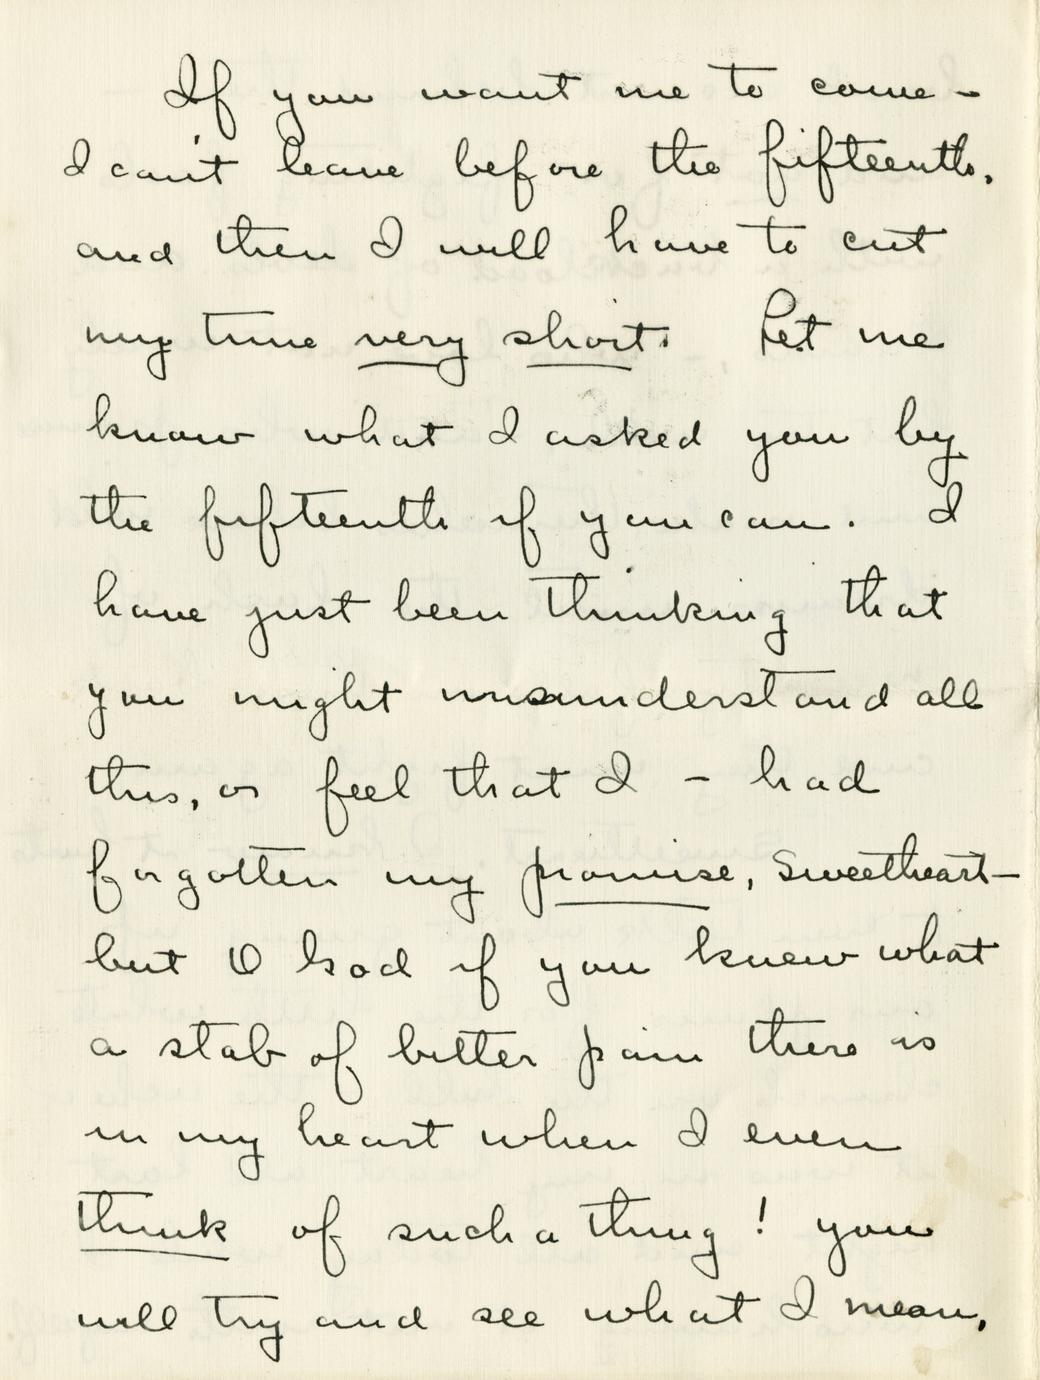 If you want me to come -
I can't leave before the fifteenth,
and then I will have to cut
my time very short. Let me
know what I asked you by
the fifteenth if you can. I
have just been thinking that
you might misunderstand all
this, or feel that I - had
forgotten my promise, sweetheart -
but O God if you knew what
a stab of bitter pain there is
in my heart when I even
think of such a thing! you
will try and see what I mean,